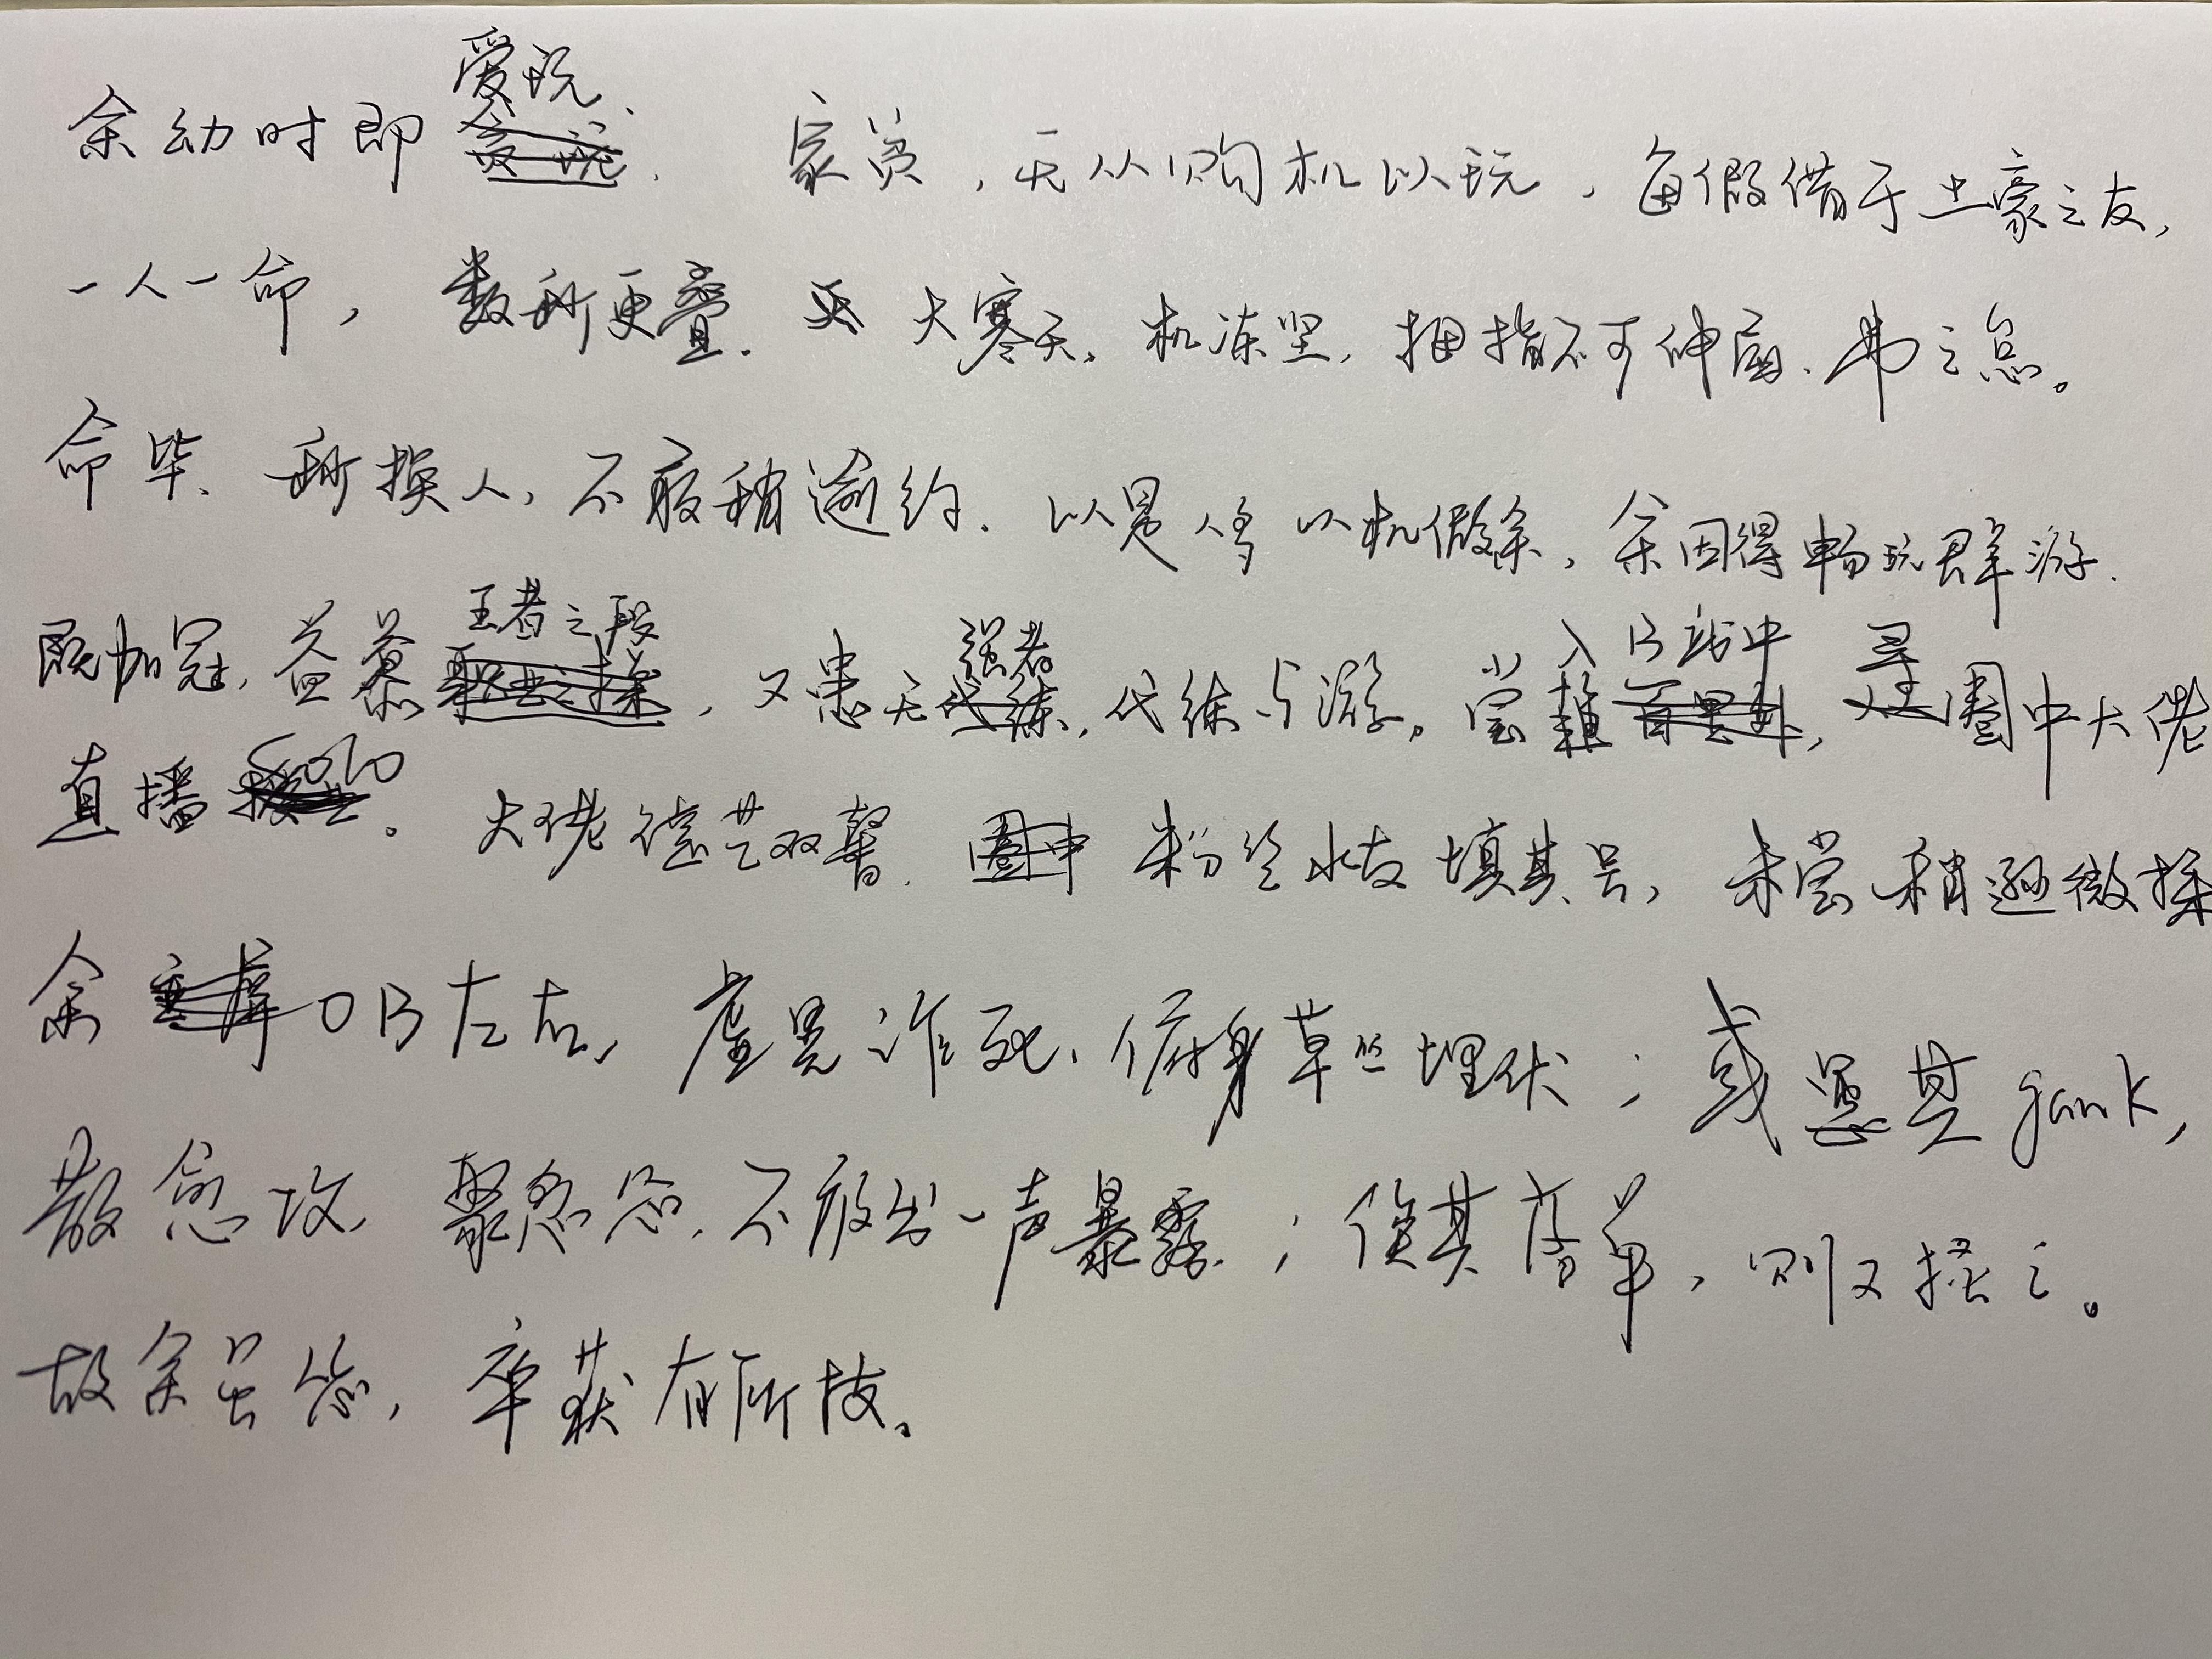 余幼时即爱玩、家贫，无从购机以玩，每假借于土豪之友，
一人一命，数秒更叠．天大寒天，机冻坚，拇指不可伸屈、弗之怠。
命毕、秒换人，不敢稍逾约．以是人多以机假余，余因得畅玩群游．
既加冠，益慕王者之段，又患无强者，代练与游。尝入B站中，寻圈中大佬
直播solo。大佬德艺双馨，粉丝水友填其号，未尝稍逊微操
余OB左右，虚晃诈死，俯身草丛埋伏；或遇其gank，
散愈攻，聚愈怂，不敢出一声暴露；俟其落单，则又搔之。
故余虽怂，卒获有所技。